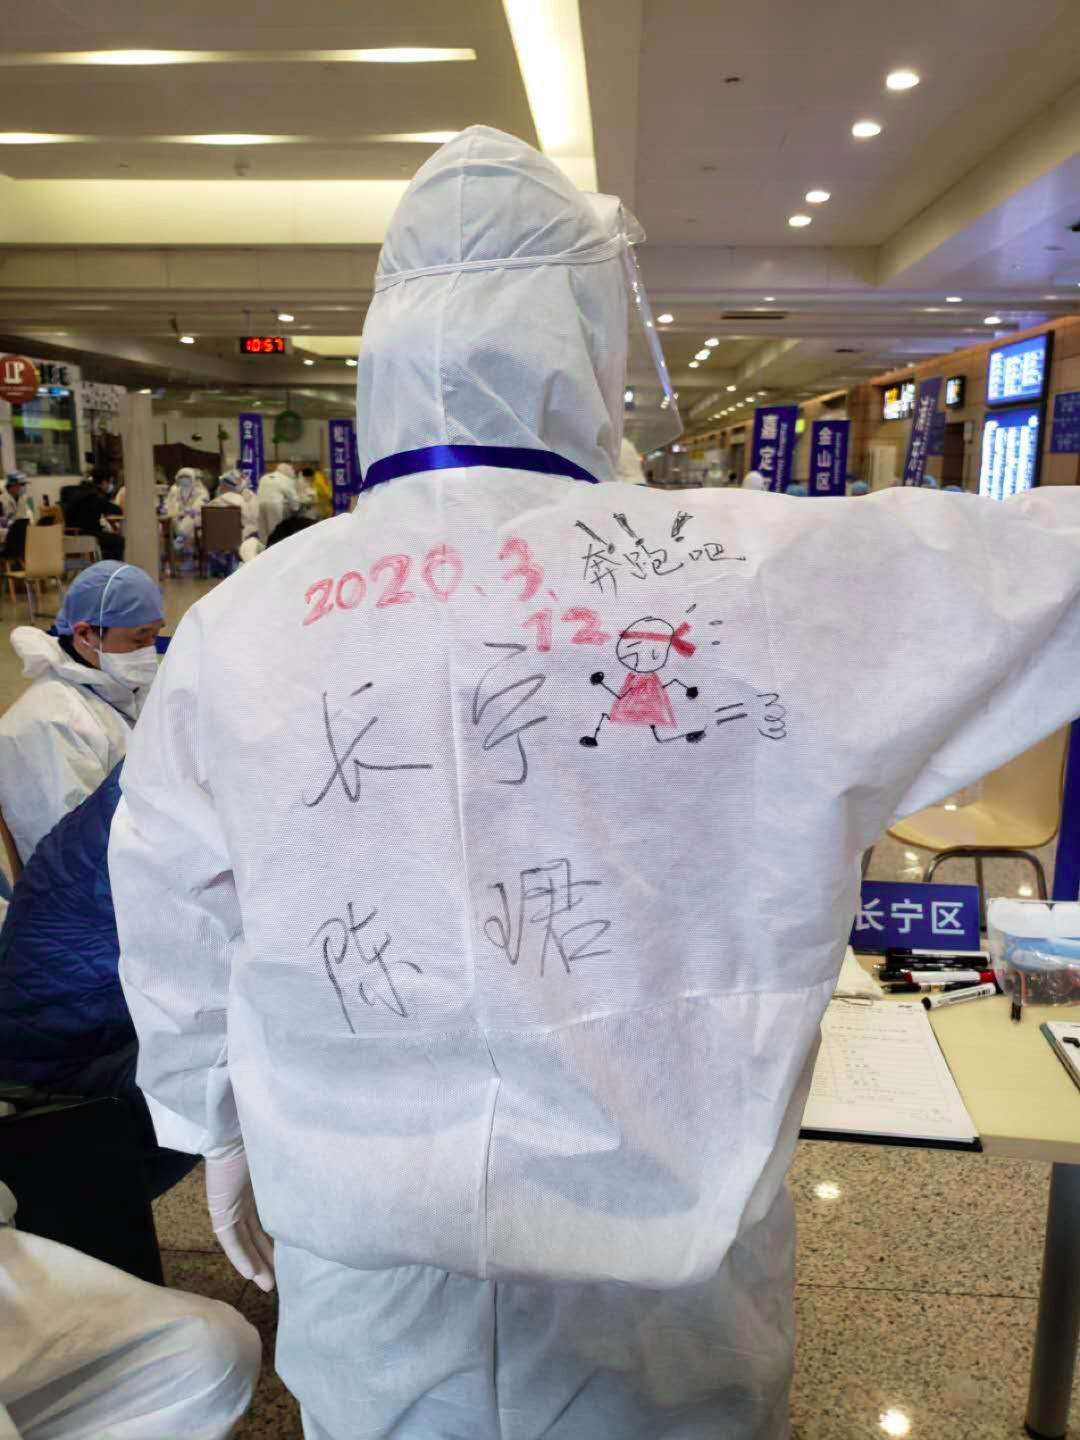 10:57
宝山区
松江区
嘉定区
金山区
2020.3.
12
奔跑吧
长宁
陈珺
长宁区